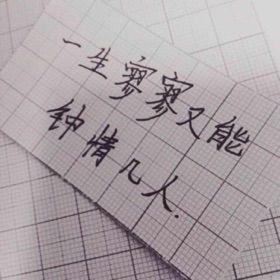 一生寥寥又能
钟情几人.